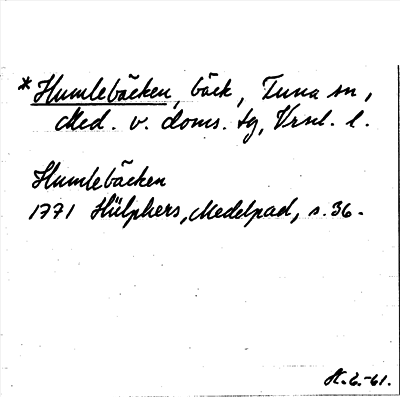 *Humlebäcken, bäck, Tuna sn,
Med. v. doms. tg, Vrnl. l.
Humlebäcken
1771 Hülphers, Medelpad, s. 36.
-61.